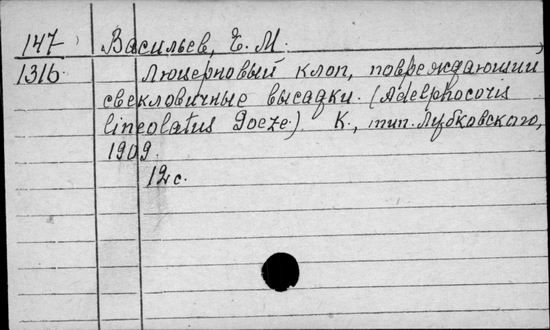 147 Васильев, Е. М.
1316 Люцерновый клоп, повреждающий
свекловичные высадки. (Adelphocoris
lineolatus Goeze.) К., тип. Лубковскаго,
1909.
12 с.